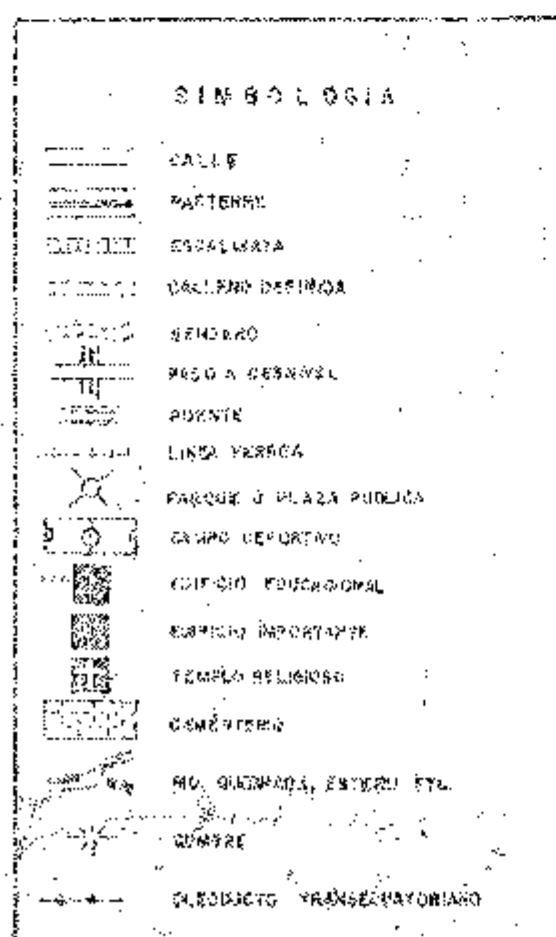 SIMBOLOGIA
CALLE
PARTERRE
ESCALINATA
CALLE NO DEFINIDA
SENDERO
PASO A DESNIVEL
PUENTE
LINEA FERREA
PARQUE O PLAZA PUBLICA
CAMPO DEPORTIVO
EDIFICIO EDUCACIONAL
EDIFICIO IMPORTANTE
TEMPLO RELIGIOSO
CEMENTERIO
RIO, QUEBRADA, ESTERO ETC.
CUMBRE
OLEODUCTO TRANSECUATORIANO